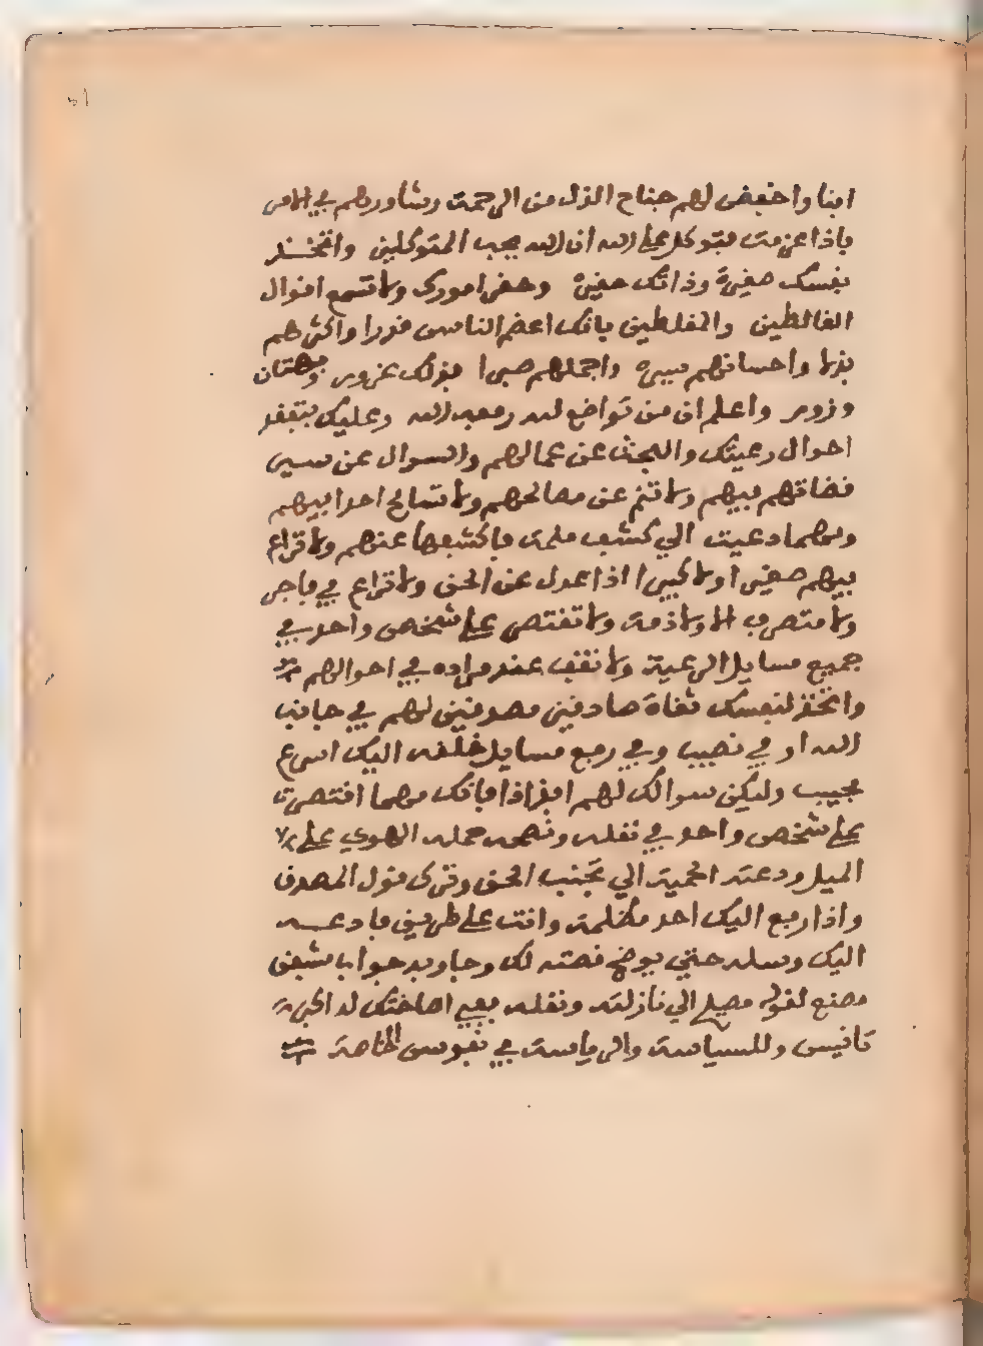 ابنا واخفض لهم جناح الذل من الرحمة وشاورهم في الامر
فاذا عزمت فتوكل على الله ان الله يحب المتوكلين واتخذ
نفسك صغيرة وذاتك حقيرة وحقر امورك ولا تسمع اقوال
الغالطين والمغلطين بانك اعظم الناس قدرا واكثرهم
بذلا واحسانهم سيرة واجملهم صبرا فذلك غرور وبهتان
وزور واعلم ان من تواضع لله رفعه الله وعليك بتفقد
احوال رعيتك والبحث عن عمالهم والسوال عن سير
قضاتهم فيهم ولا تنم عن مصالحهم ولا تسامح احدا فيهم
ومهما دعيت الى كشف ملمة فاكشفها عنهم ولا تراع
فيهم صغيرا ولا كبيرا اذا عدل عن الحق ولا تراع في فاجر
ولا متصرف الا ولا ذمة ولا تقتصر على شخص واحد في
جميع مسايل الرعية ولا تقف عند مراده في احوالهم
واتخذ لنفسك ثقاة صادقين مصدقين لهم في جانب
الله او في نصيب وفي رفع مسايل خلقه اليك اسرع
مجيب وليكن سوالك لهم افذاذا فانك مهما اقتصرت
على شخص واحد في نقله ونصحه حمله الهوى على
الميل ودعته الحمية الى تجنب الحق وترك قول الصدق
واذا رفع اليك احد مظلمة وانت على طريق فادعه
اليك وسله حتى يوضح قصته لك وجاوبه جواب مشفق
مصغ لقوله مصيخ الى نازلته ونقله ففي اصاختك له اكبر
تانيس وللسياسة والرياسة في نفوس الخاصة